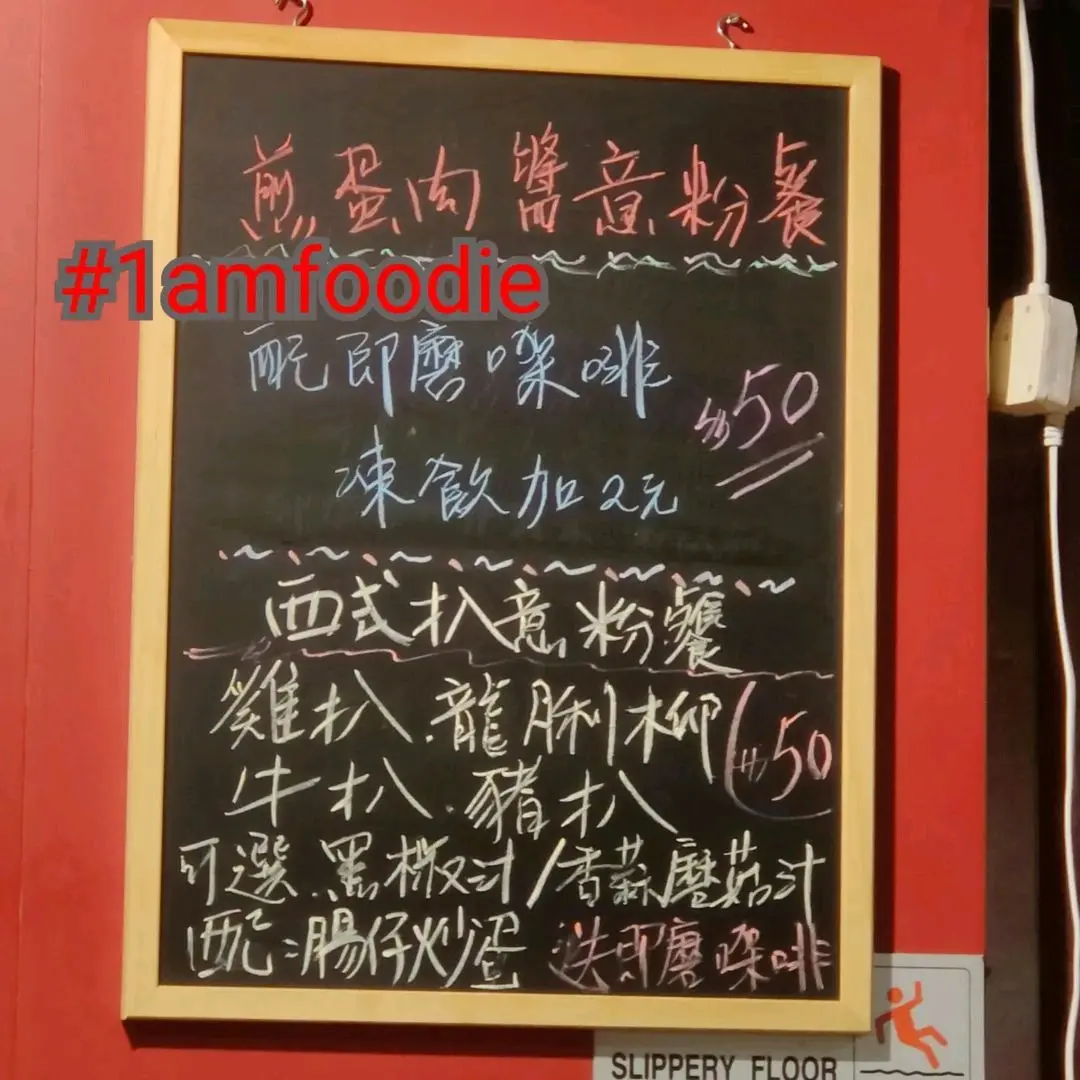 煎蛋肉醬意粉餐
#1amfoodie
配即磨㗎啡
$50
凍飲加2元
西式扒意粉餐
雞扒.龍脷柳
牛扒.豬扒
$50
可選:黑椒汁/香蒜磨菇汁
配:腸仔炒蛋 送即磨㗎啡
SLIPPERY FLOOR